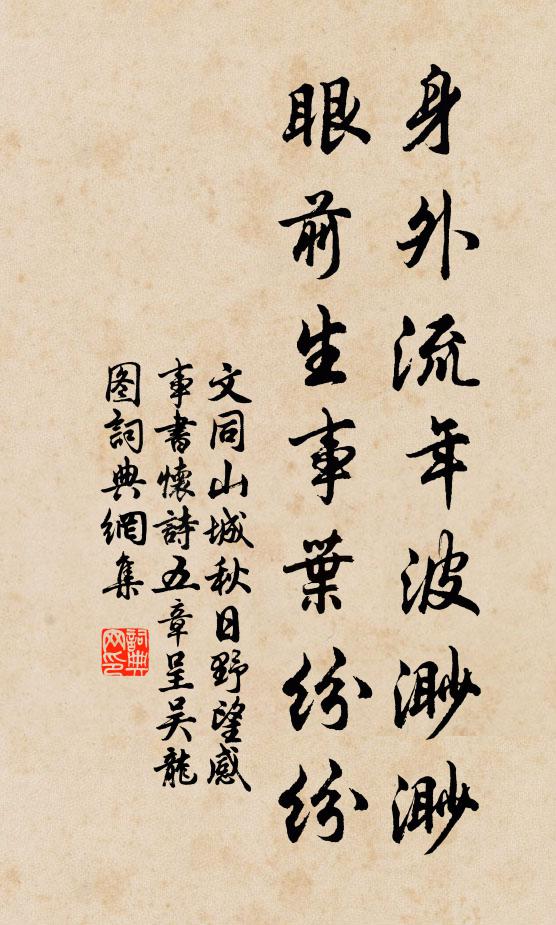 身外流年波渺渺
眼前生事葉紛紛
文同山城秋日野望感
事書懷詩五章呈吴龍
图詞典網集
詞典網印